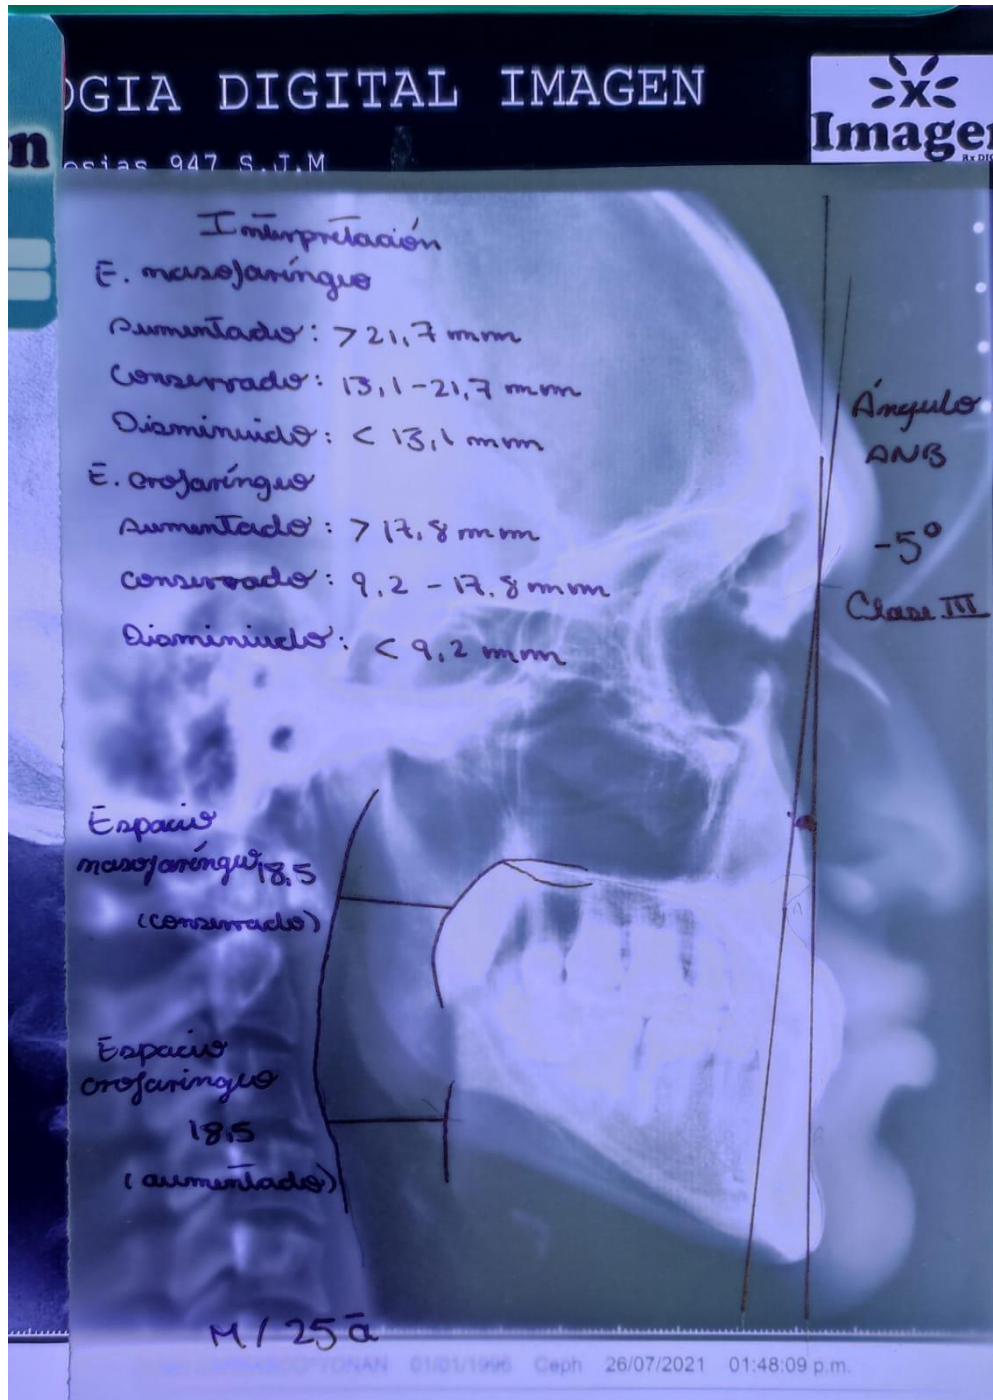 OGIA DIGITAL IMAGEN
947 S.J.M
X
Imagen
n
Interpretación
E. nasofaríngeo
Aumentado: > 21,7 mm
Conservado: 13,1-21,7 mm
Disminuido: < 13,1 mm
E. orofaríngeo
Aumentado: > 17,8 mm
Conservado: 9,2 - 17,8 mm
Disminuido: < 9,2 mm
Ángulo
ANB
-5°
Clase III
Espacio
nasofaríngeo 18,5
(conservado)
Espacio
orofaringeo
18,5
(aumentado)
M / 25 a
01/01/1996 Ceph 26/07/2021 01:48:09 p.m.